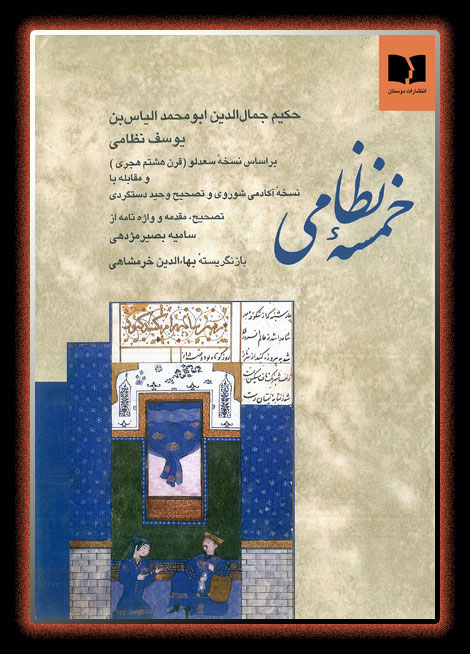 انتشارات دوستان
حکیم جمال‌الدین ابومحمد الیاس‌بن
یوسف نظامی
براساس نسخهٔ سعدلو (قرن هشتم هجری)
و مقابله با
نسخهٔ آکادمی شوروی و تصحیح وحید دستگردی
تصحیح، مقدمه و واژه نامه از
سامیه بصیر مژدهی
بازنگریستهٔ بهاءالدین خرمشاهی
خمسهٔ نظامی